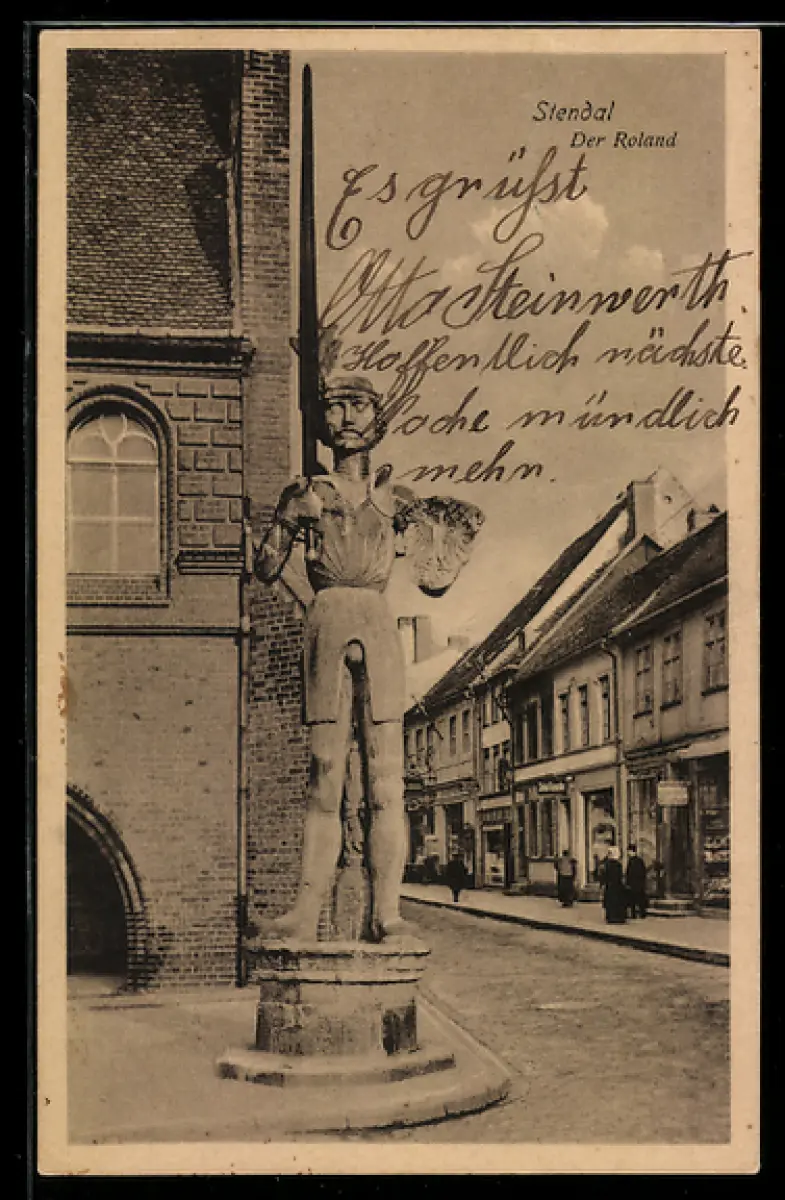 Stendal
Der Roland
Es grüßt
Otto Steinwerth.
Hoffentlich nächste
Woche mündlich
mehr.